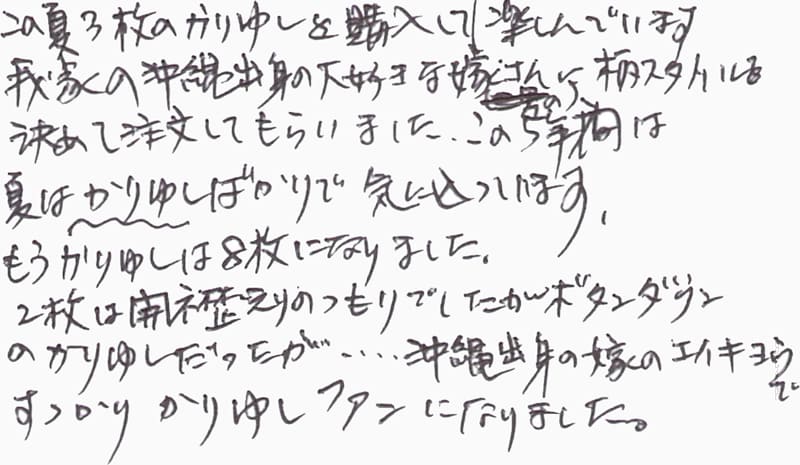 この夏3枚のかりゆしを購入して楽しんでいます
我家の沖縄出身の大好きな嫁さんに柄スタイルを
決めて注文してもらいました、この5年間は
夏はかりゆしばかりで気に入っています、
もうかりゆしは8枚になりました。
2枚は開衿のつもりでしたがボタンダウン
のかりゆしだったが‥‥沖縄出身の嫁のエイキョウで
すっかりかりゆしファンになりました。